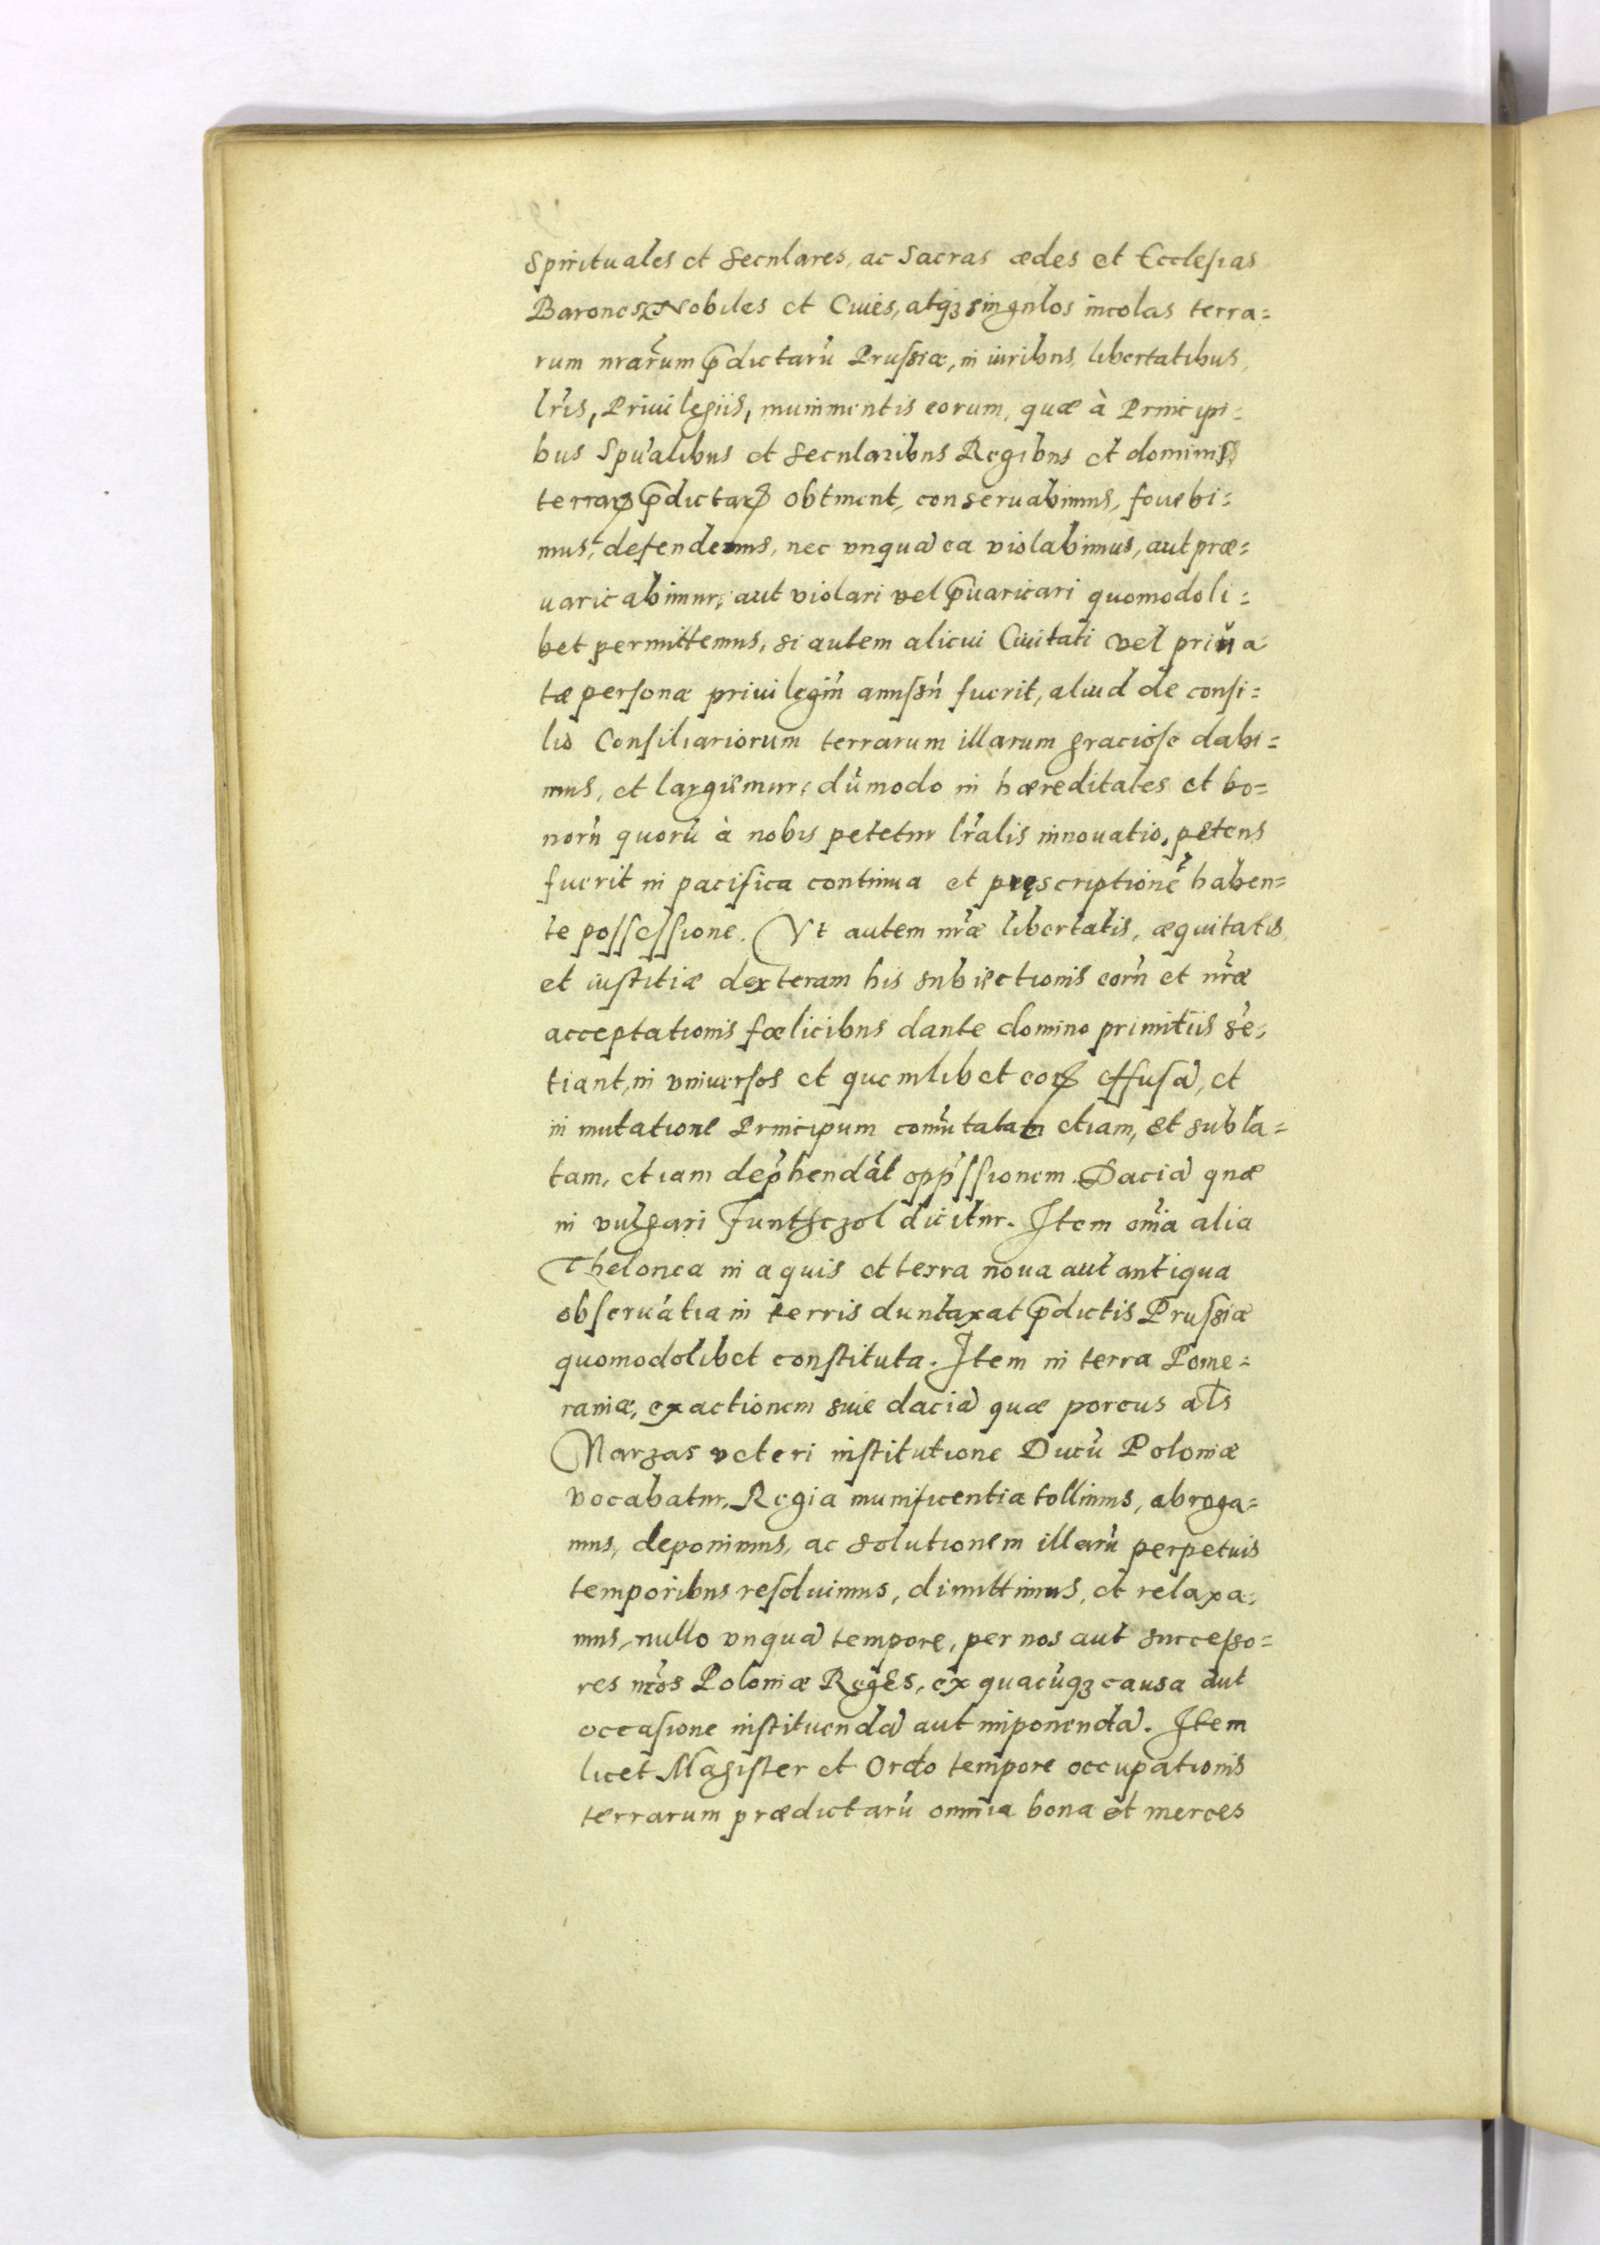 Spirituales et Seculares, ac Sacras ædes et Ecclesias
Barones, Nobiles et Ciues, atqꝫ singulos incolas terra=
rum nrãrum p̃dictarũ Prussiæ, in iuribus, libertatibus,
lr̃is, Priuilegiis, munimentis eorum, quæ à Princípi=
bus Spũalibus et Secularibus Regibus et dominis
terraꝝ p̃dictaꝝ obtinent, conseruabimus, fouebi=
mus, defendemus, nec vnquã ea violabimus, aut præ=
uaricabimur, aut violari vel p̃uaricari quomodoli=
bet permittemus, si autem alicui Ciuitati vel priua
tæ personæ priuilegiũ amissũ fuerit, aliud de consi=
lio Consiliariorum terrarum illarum graciose dabi=
mus, et largiemur, dũmodo in hæreditates et bo=
norũ quorũ à nobis petetur lr̃alis innouatio, petens
fuerit in pacifica continua et præscriptionẽ haben=
te possessione. Vt autem nr̃æ libertatis, æquitatis
et iustitiæ dexteram his subiectionis eorũ et nr̃æ
acceptationis fœlicibus dante domino primitiis sẽ=
tiant, in vniuersos et quemlibet eoꝝ effusã, et
in mutatione Principum com̃utatam etiam, et subla=
tam, etiam dep̃hendãt opp̃ssionem Daciã quæ
in vulgari Funthczol dicitur. Item om̃ia alia
Thelonea in aquis et terra noua aut antiqua
obseruãtia in terris duntaxat p̃dictis Prussiæ
quomodolibet constituta. Item in terra Pome=
raniæ, exactionem siue daciã quæ porcus als
Narzas veteri institutione Ducũ Poloniæ
vocabatur, Regia munificentia tollimus, abroga=
mus, deponimus, ac solutionem illarũ perpetuis
temporibus resoluimus, dimittimus, et relaxa=
mus, nullo vnquã tempore, per nos aut successo=
res nr̃os Poloniæ Reges, ex quacũqꝫ causa aut
occasione instituendã aut imponendã. Item
licet Magister et Ordo tempore occupationis
terrarum prædictarũ omnia bona et merces